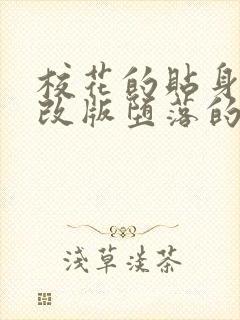 校花的贴身
改版堕落的
浅草淡茶